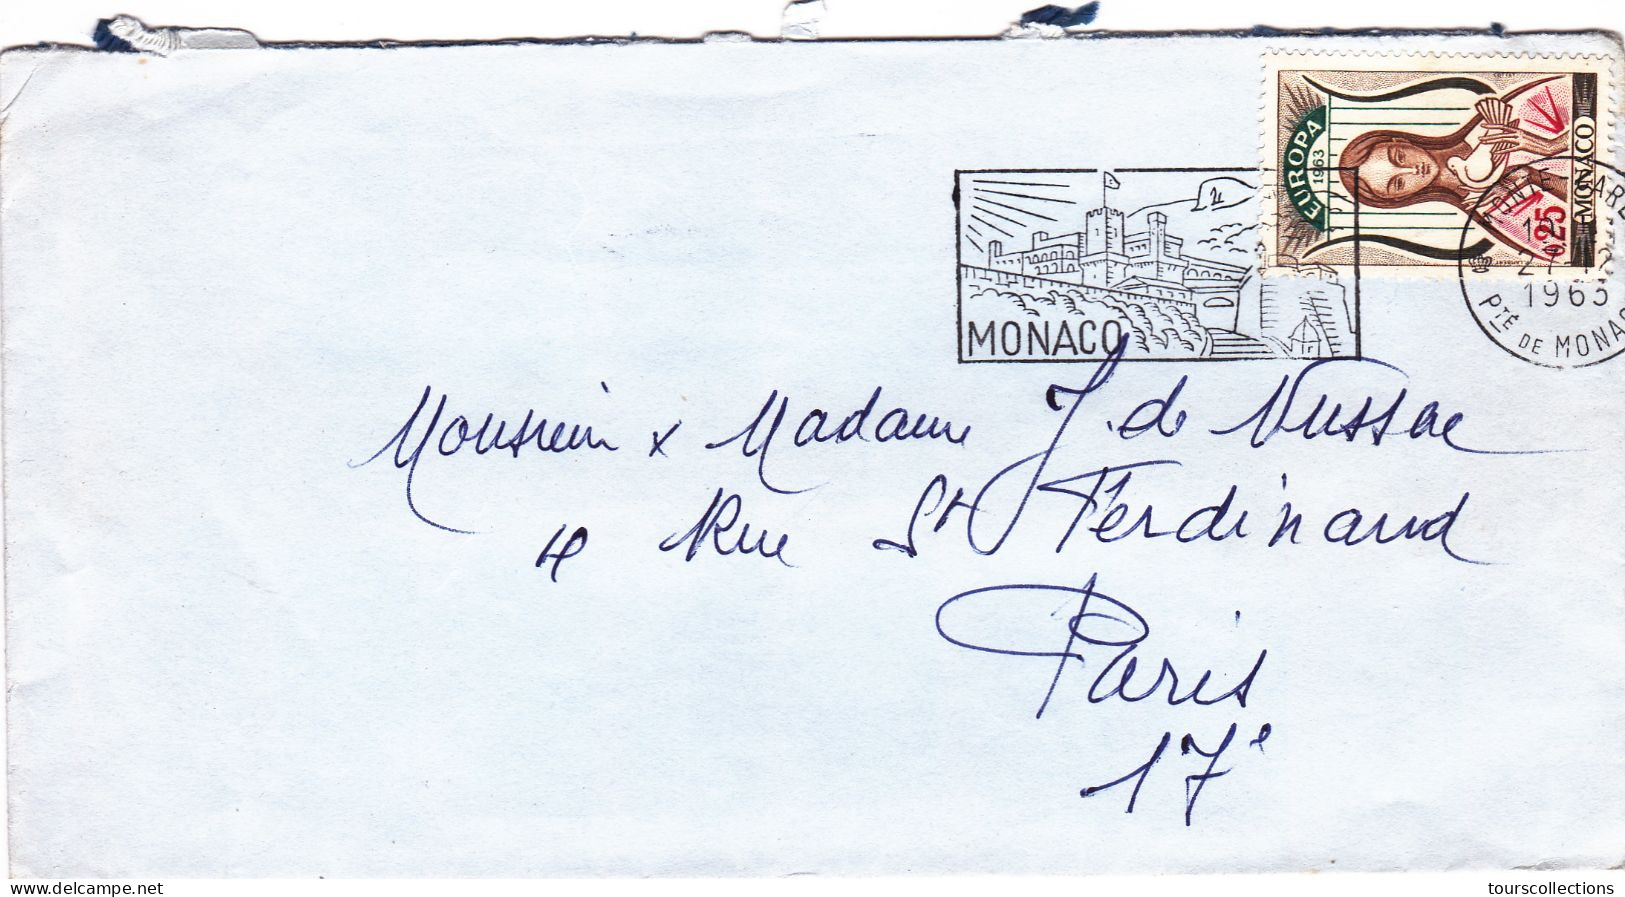 EUROPA
1963
0,25
MONACO
MONACO
1963
PTÉ DE MONAC
Monsieur & Madame J. de Nussac
4 Rue St Ferdinand
Paris
17e
www.delcampe.net
tourscollections